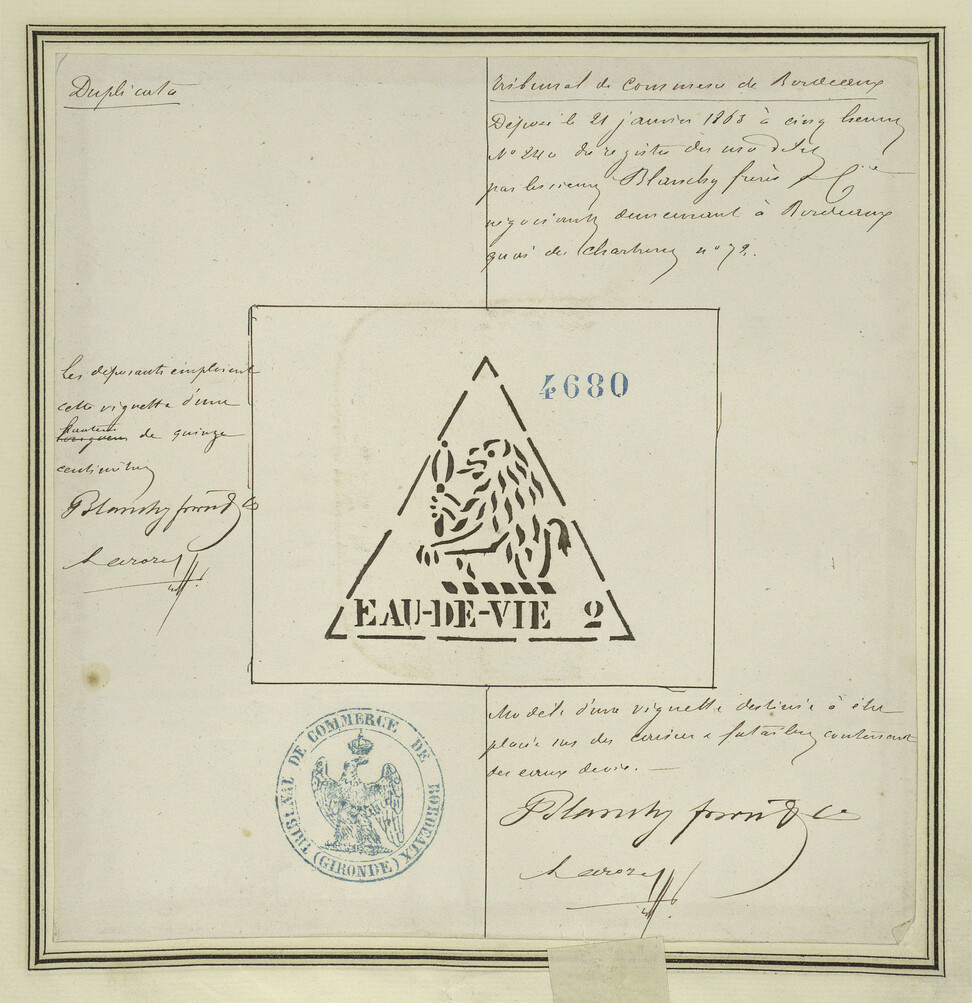 Duplicata
Tribunal de Commerce de Bordeaux
Déposé le 21 janvier 1863 à cinq heures
N° 240 du registre des modèles
par les sieurs Blanchy frères & Cie
négociants demeurant à Bordeaux
quai des Chartrons n° 72.
4680
Les déposants emploient
cette vignette d'une
hauteur
longueur de quinze
centimètres
Blanchy frères & Co
EAU-DE-VIE 2
TRIBUNAL DE COMMERCE DE BORDEAUX
(GIRONDE)
Modèle d'une vignette destinée à être
placée sur des caisses & futailles contenant
des eaux de vie.
Blanchy frères & Co